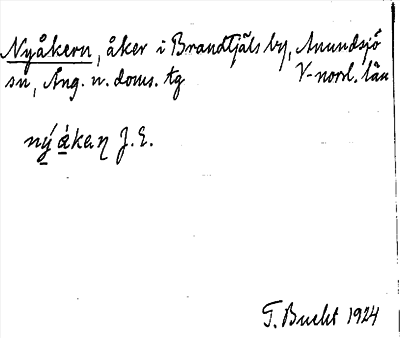 Nyåkern, åker i Brandtjäls by, Anundsjö
sn, Ång. n. doms. tg V-norrl. län
nýǻkaη J.E.
T. Bucht 1924